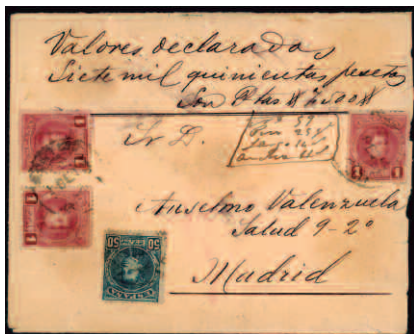 Valores declarados
Siete mil quinientas pesetas
Son Ptas # 7500 #
Sr D.
Anselmo Valenzuela
Salud 9-2º
Madrid
1
1
1
1
1
1
50
50